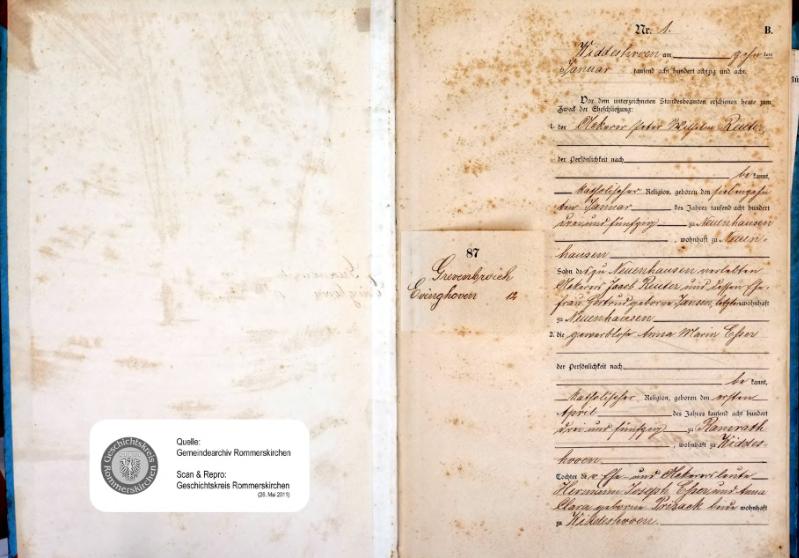 Nr. 1.
B.
Widdeshoven am zehnten
Januar tausend acht hundert achtzig und acht.
Vor dem unterzeichneten Standesbeamten erschienen heute zum
Zweck der Eheschließung:
1. der Ackerer Peter Wilhelm Reuter,
der Persönlichkeit nach
be kannt,
katholischer Religion, geboren den siebenzehn
ten Januar des Jahres tausend acht hundert
drei und fünfzig zu Neuenhausen
, wohnhaft zu Neuen-
hausen
Sohn des zu Neuenhausen verlebten
Ackerers Jacob Reuter und dessen Ehe-
frau Gertrud geborene Jansen, letztere wohnhaft
zu Neuenhausen
2. die gewerblose Anna Maria Esser
der Persönlichkeit nach
be kannt,
katholischer Religion, geboren den ersten
April des Jahres tausend acht hundert
drei und fünfzig zu Ramrath
, wohnhaft zu Widdes-
hoven
Tochter der Ehe- und Ackersleute
Hermann Joseph Esser und Anna
Clara geborene Prisack beide wohnhaft
zu Widdeshoven.
87
Grevenbroich
Evinghoven 12
Geschichtskreis
Rommerskirchen
Quelle:
Gemeindearchiv Rommerskirchen
Scan & Repro:
Geschichtskreis Rommerskirchen
(26. Mai 2011)